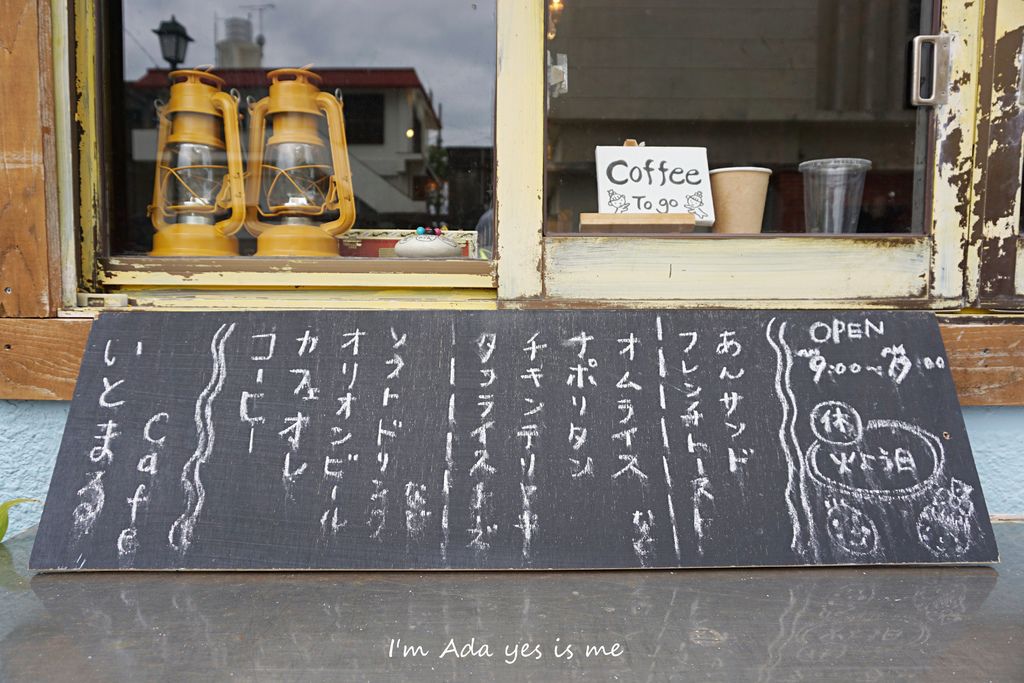 Coffee
To go
OPEN
休
あんサンド
フレンチトースト
オムライス
ナポリタン
チキンデリヤ
タコライスチーズ
など
ソフトドリンク
など
オリオンビール
カフェオレ
コーヒー
Cafe
いとまる
I'm Ada yes is me